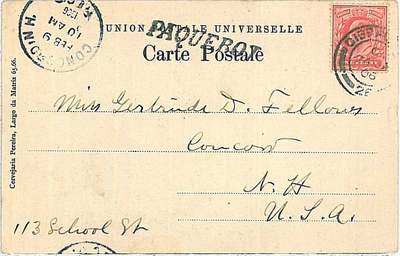 UNION POSTALE UNIVERSELLE
PAQUEBOT
Carte Postale
CONCORD N.H.
FEB 9
10 AM
1906
06
26
Miss Gertrude D. Fellows
Concord
N. H
U. S. A.
113 School St
Cervejaria Pereira, Largo da Mareis 65, 66.